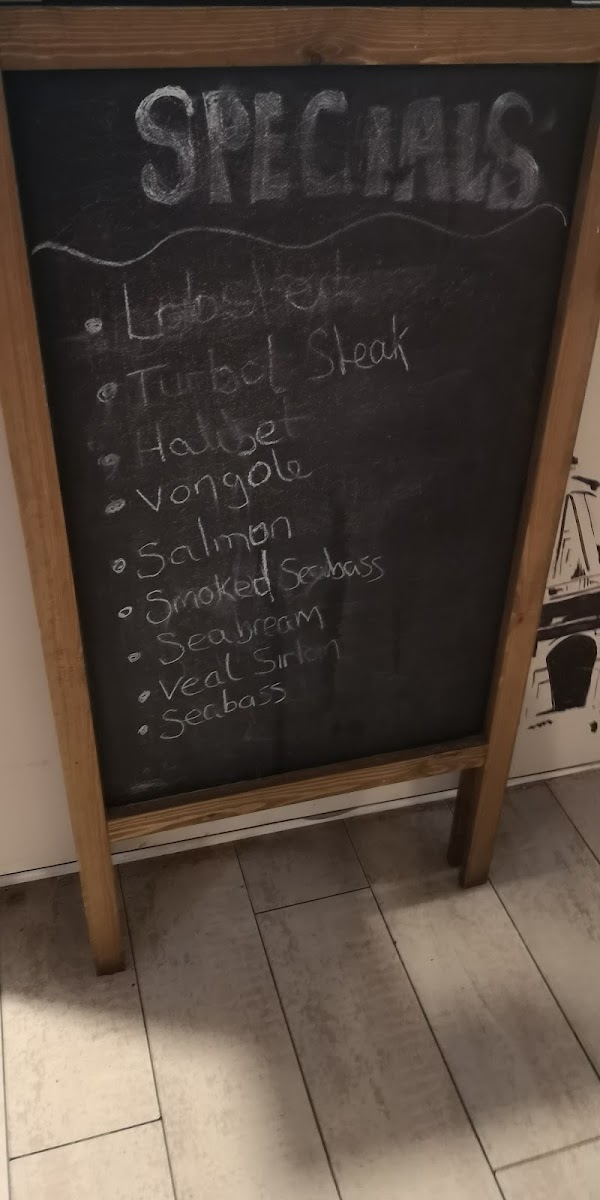 SPECIALS
Lobster
Turbot Steak
Halibet
Vongole
Salmon
Smoked Seabass
Seabream
Veal Sirloin
Seabass